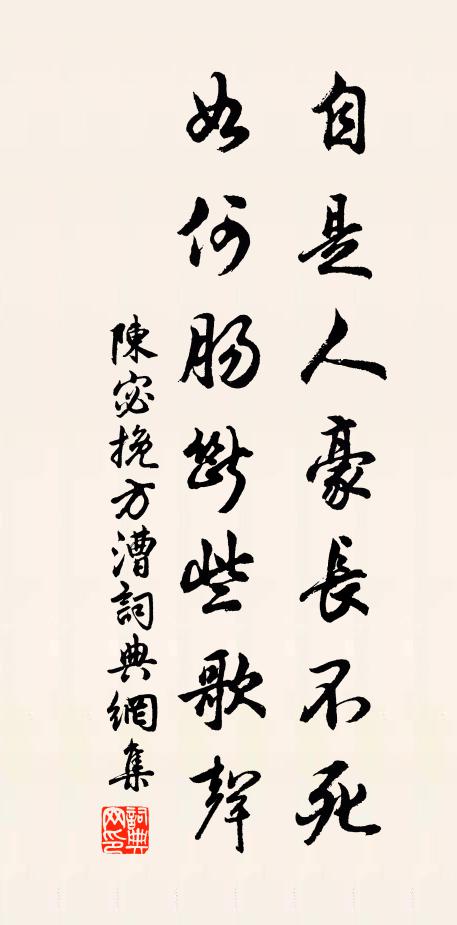 自是人豪長不死
如何腸斷些歌聲
陳宓挽方漕詞典網集
詞典網印